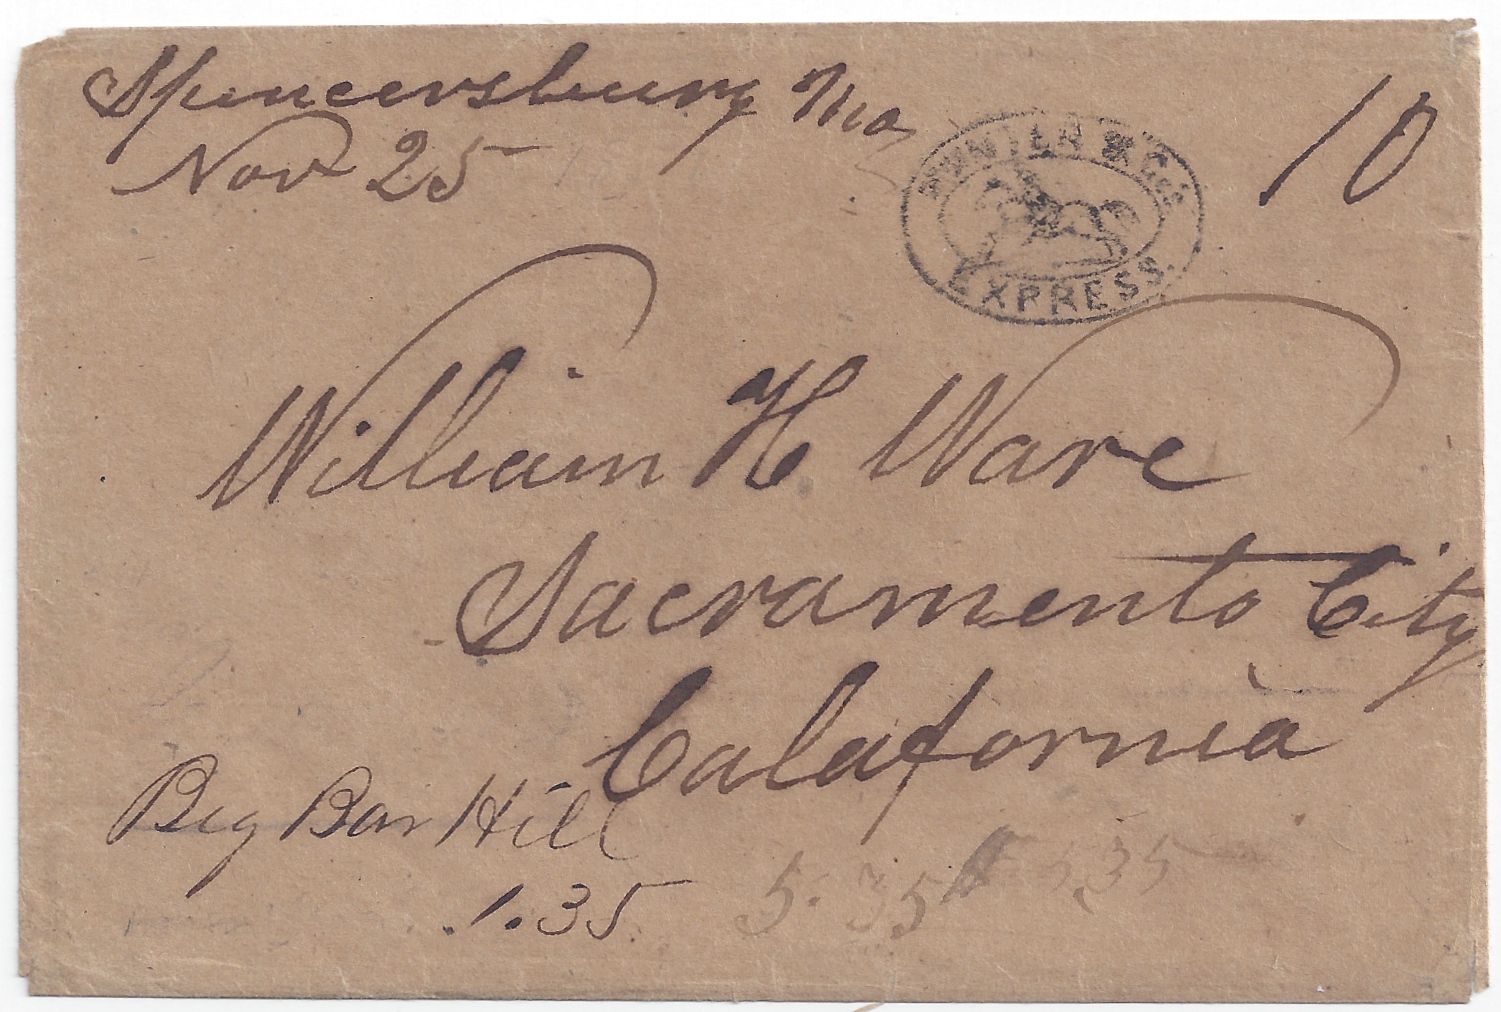 Spencersburg Mo
Nov 25
10
HUNTER & Co's
EXPRESS.
William H Ware
Sacramento City
Calafornia
Big Bar Hill
1.35
5.35
535